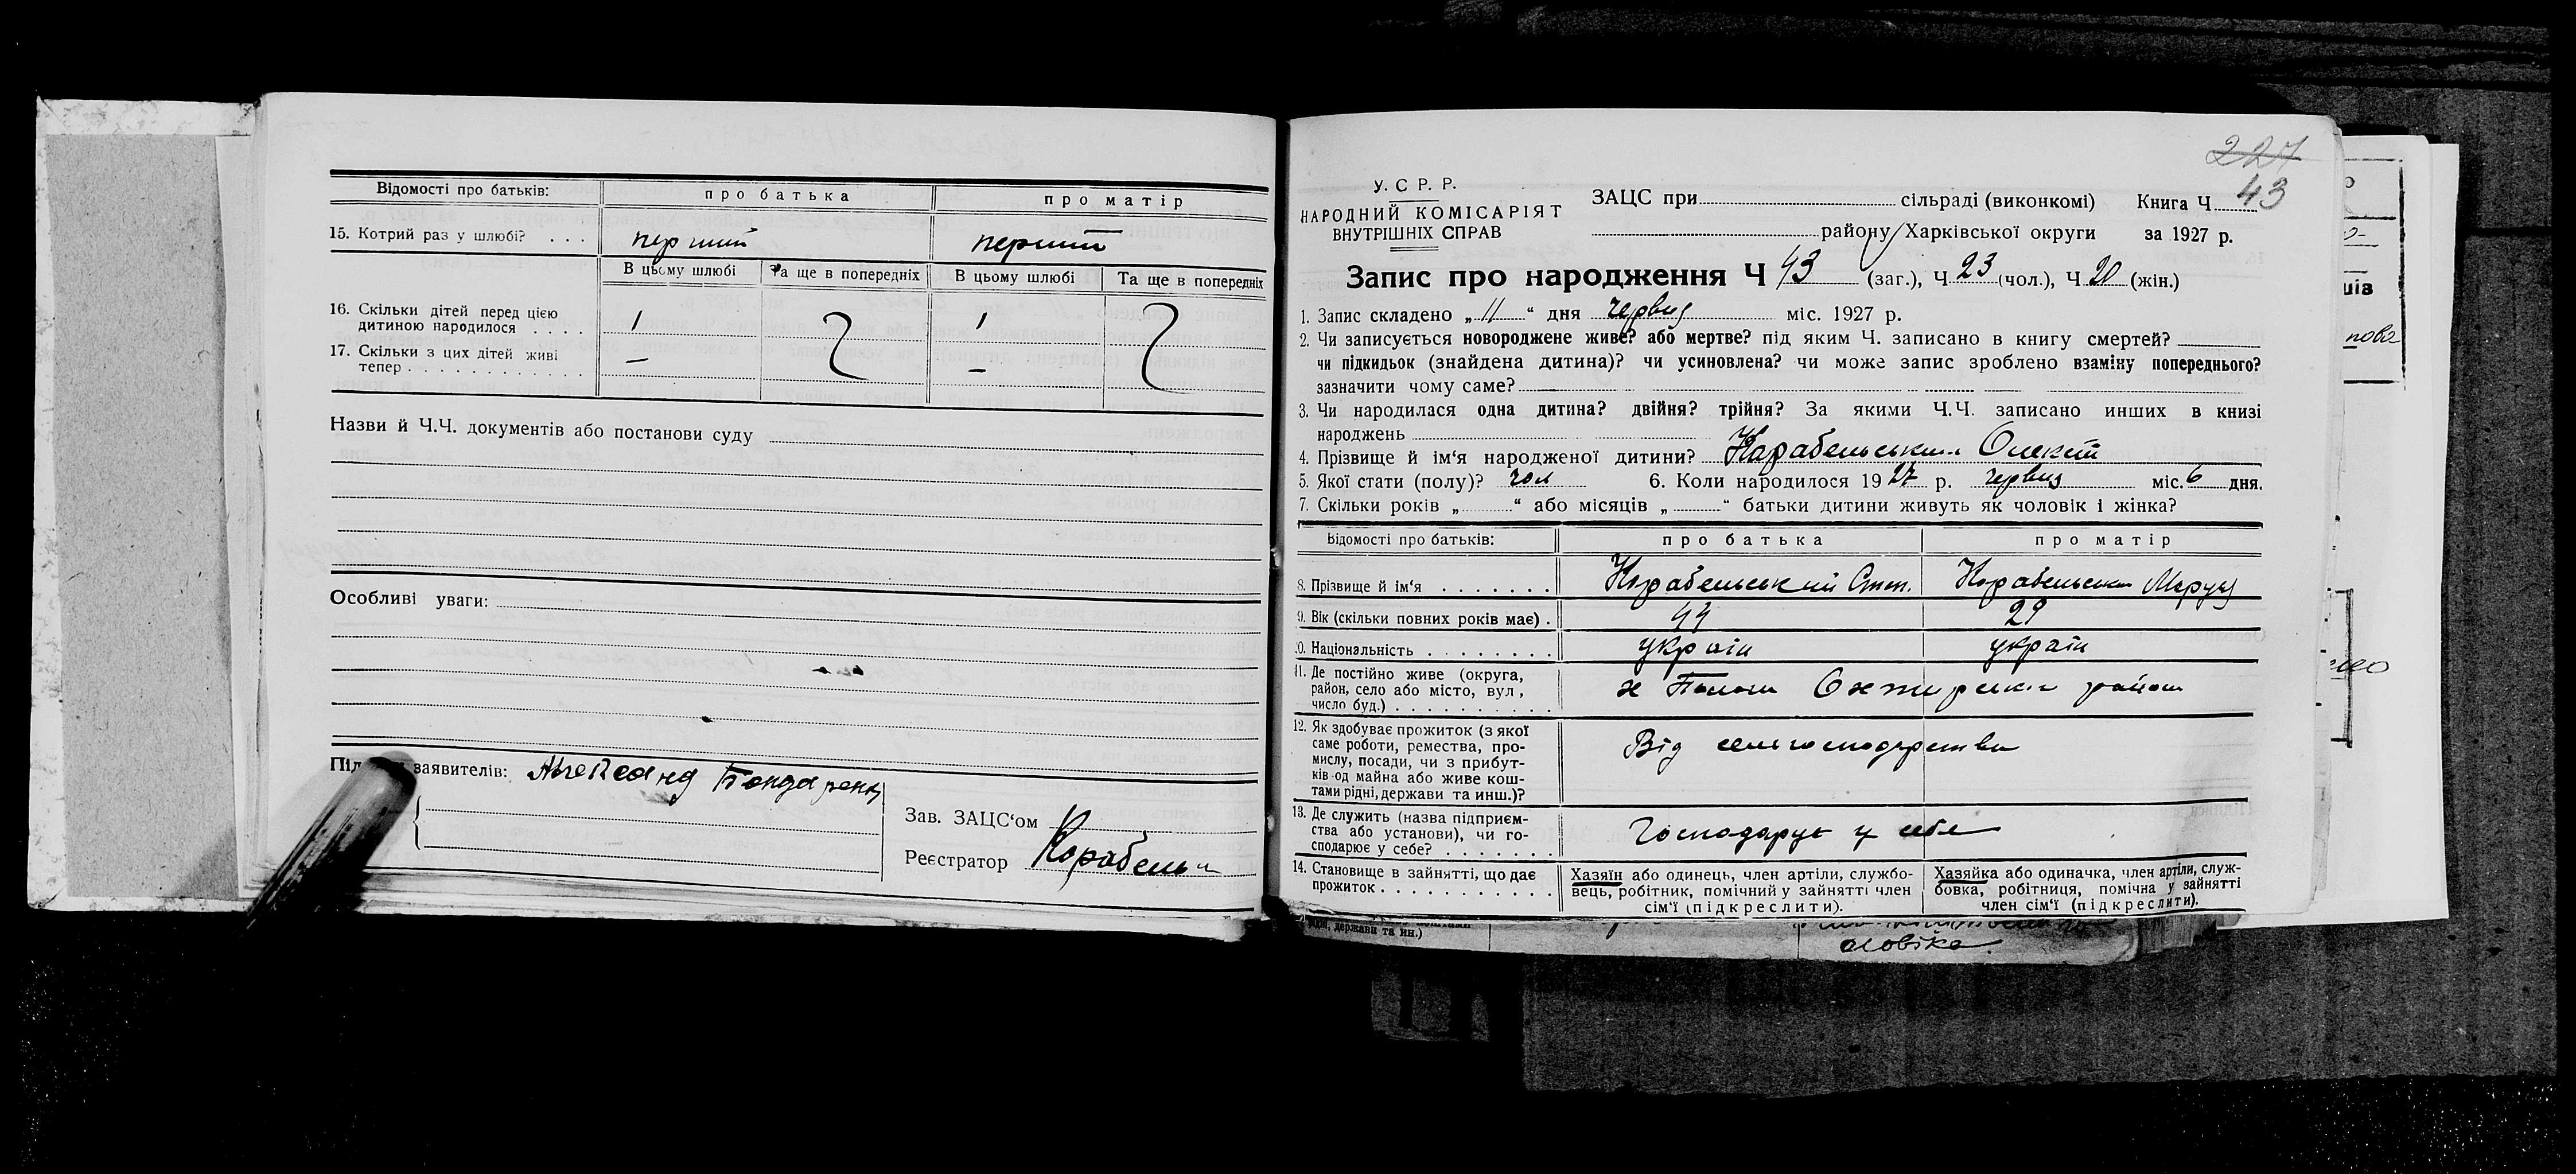 Відомості про батьків: про батька про матір
15. Котрий раз у шлюбі? . . . перший перший
В цьому шлюбі Та ще в попередніх В цьому шлюбі Та ще в попередніх
16. Скільки дітей перед цією
дитиною народилося . . . . 1 1
17. Скільки з цих дітей живі
тепер . . . . . . . . . . . . – –
Назви й Ч.Ч. документів або постанови суду
Особливі уваги:
заявителів: Бондаренко
Зав. ЗАЦС‘ом
Реєстратор Корабельн
227
43
У. С Р. Р.
НАРОДНИЙ КОМІСАРІЯТ
ВНУТРІШНІХ СПРАВ
ЗАЦС при сільраді (виконкомі) Книга Ч
району Харківської округи за 1927 р.
Запис про народження Ч 43 (заг.), Ч 23 (чол.), Ч 20 (жін.)
1. Запис складено „ 11 “ дня червця міс. 1927 р.
2. Чи записується новороджене живе? або мертве? під яким Ч. записано в книгу смертей?
чи підкидьок (знайдена дитина)? чи усиновлена? чи може запис зроблено взаміну попереднього?
зазначити чому саме?
3. Чи народилася одна дитина? двійня? трійня? За якими Ч.Ч. записано инших в книзі
народжень
4. Прізвище й ім‘я народженої дитини? Карабельський Олексій
5. Якої стати (полу)? чол 6. Коли народилося 1927 р. червця міс. 6 дня.
7. Скільки років „ “ або місяців „ “ батьки дитини живуть як чоловік і жінка?
Відомості про батьків: про батька про матір
8. Прізвище й ім‘я . . . . . . . Карабельський Карабельська
9. Вік (скільки повних років має) . 44 29
0. Національність . . . . . . . . україн україн
11. Де постійно живе (округа,
район, село або місто, вул,
число буд.) . . . . . . . . . . х Охтирськ район
12. Як здобуває прожиток (з якої
саме роботи, ремества, про-
мислу, посади, чи з прибут-
ків од майна або живе кош-
тами рідні, держави та инш.)? Від сельгосподарства
13. Де служить (назва підприєм-
ства або установи), чи го-
сподарює у себе? . . . . . . . Господарує у себе
14. Становище в зайнятті, що дає
прожиток . . . . . . . . . . .
Хазяїн або одинець, член артіли, службо-
вець, робітник, помічний у зайнятті член
сім‘ї (підкреслити).
Хазяйка або одиначка, член артіли, служ-
бовка, робітниця, помічна у зайнятті
член сім‘ї (підкреслити).
рідні, держави та ин.)